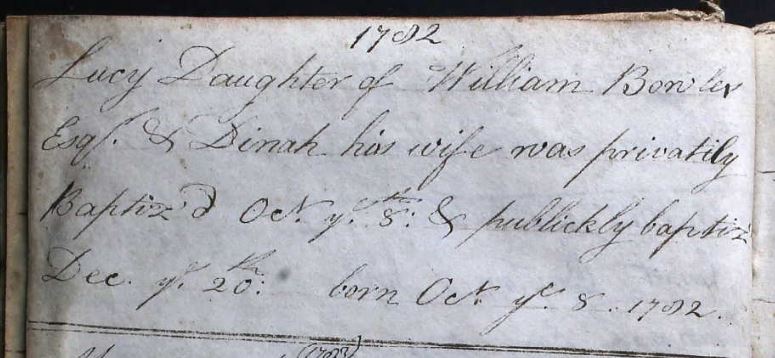 1782
Lucy Daughter of William Bowles
Esqr. & Dinah his wife was privatily
Baptiz'd Oct. ye. 8th: & publickly baptiz
Dec. ye. 20th: born Oct. ye. 8. 1782.